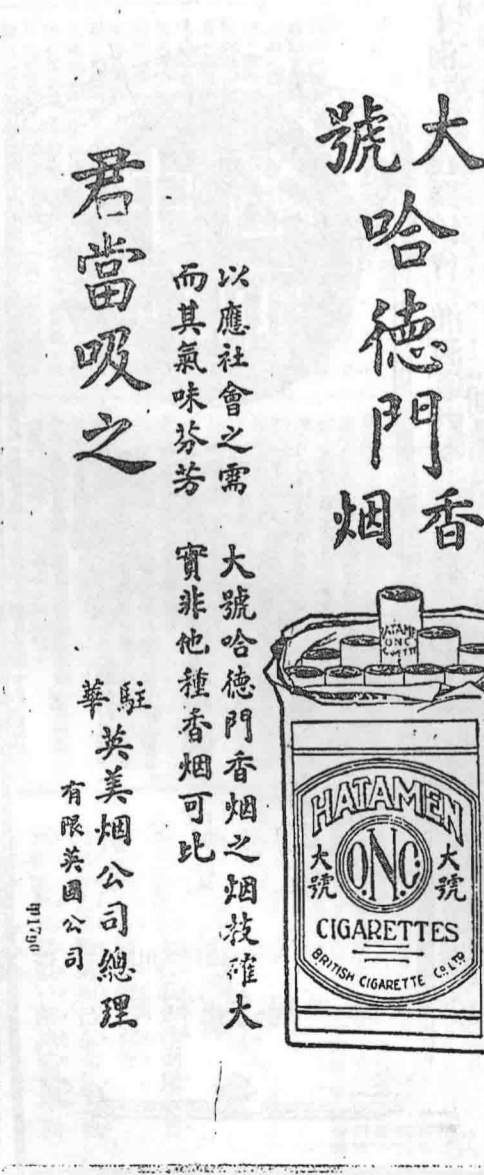 大號
哈德門
香烟
ONC
HATAMEN
大號
O.N.C.
大號
CIGARETTES
BRITISH CIGARETTE CO. LTD
以應社會之需 大號哈德門香烟之烟枝確大
而其氣味芬芳 實非他種香烟可比
君當吸之
駐華英美烟公司總理
有限英國公司